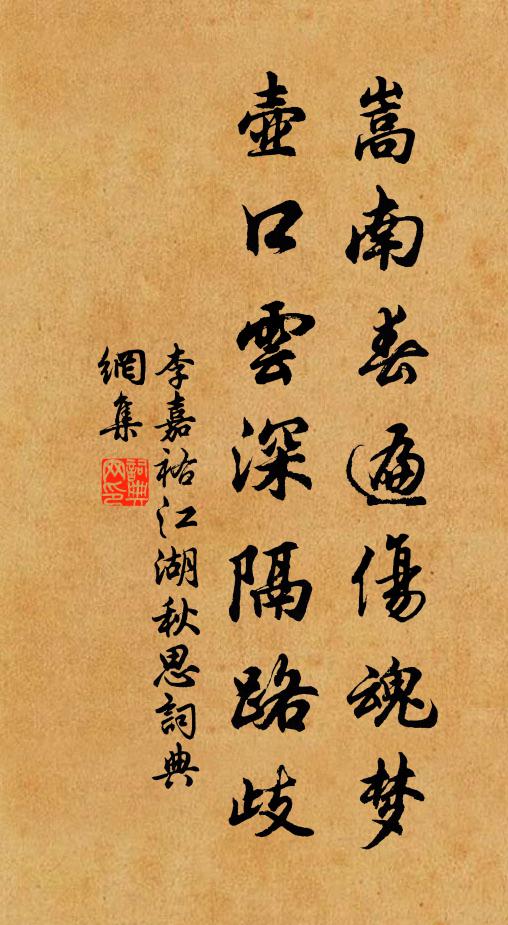 嵩南春遍傷魂梦
壺口雲深隔路歧
李嘉祐江湖秋思詞典
網集
詞典
网印